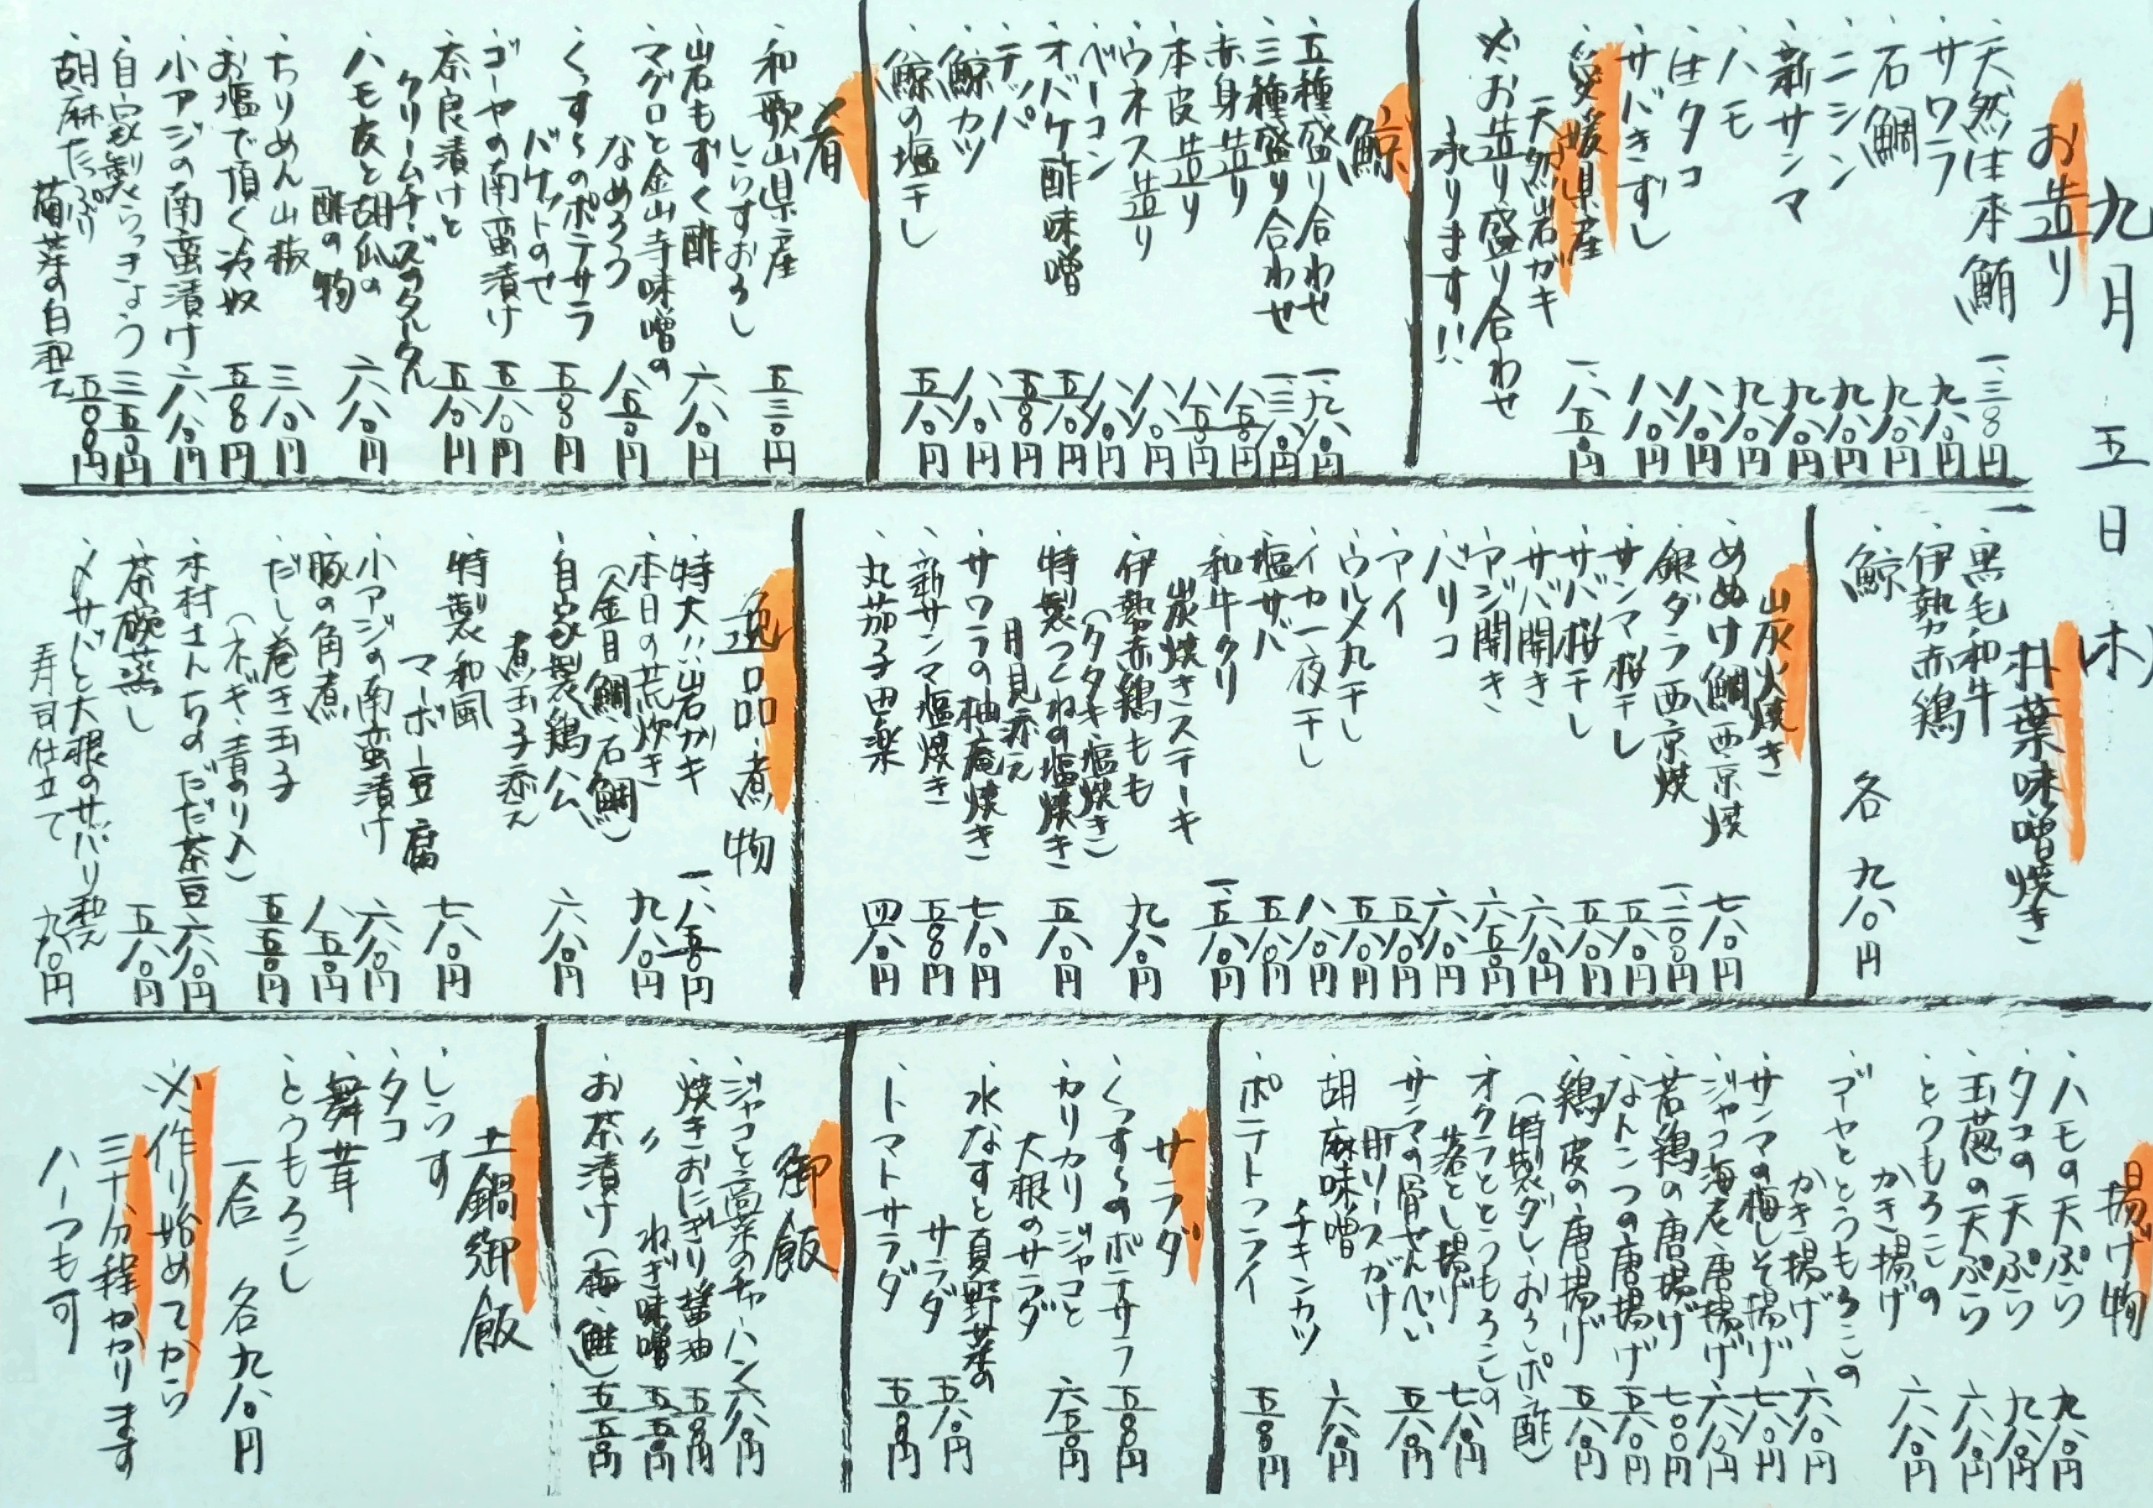 九月五日(木)
お造り
・天然生本鮪 一、三八〇円
・サワラ 九八〇円
・石鯛 九八〇円
・ニシン 九八〇円
・新サンマ 九八〇円
・ハモ 九八〇円
・生タコ 八八〇円
・サバきずし 八八〇円
・愛媛県産
天然岩ガキ 一、八五〇円
※お造り盛り合わせ
承ります!!
鯨
・五種盛り合わせ 一、九八〇円
・三種盛り合わせ 一、三八〇円
・赤身造り 八五〇円
・本皮造り 八五〇円
・ウネス造り 八八〇円
・ベーコン 八八〇円
・オバケ酢味噌 五八〇円
・テッパ 五八〇円
・鯨カツ 八八〇円
・鯨の塩干し 五八〇円
肴
・和歌山県産
しらすおろし 五三〇円
・岩もずく酢 六八〇円
・マグロと金山寺味噌の
なめろう 八五〇円
・くっすらのポテサラ
バケットのせ 五八〇円
・ゴーヤの南蛮漬け 五八〇円
・奈良漬けと
クリームチーズのタルタル 五八〇円
・ハモ皮と胡瓜の
酢の物 六八〇円
・ちりめん山椒 三八〇円
・お塩で頂く冷奴 五八〇円
・小アジの南蛮漬け 六八〇円
・自家製らっきょう 三五〇円
・胡麻たっぷり
菊菜の白和え 五八〇円
朴葉味噌焼き
・黒毛和牛
・伊勢赤鶏
・鯨
各 九八〇円
炭火焼き
・めぬけ鯛西京焼 七八〇円
・銀ダラ西京焼 一、二〇〇円
・サンマ桜干し 五八〇円
・サバ桜干し 五八〇円
・サバ開き 六八〇円
・アジ開き 六五〇円
・バリコ 六八〇円
・アイ 五八〇円
・ウルメ丸干し 五八〇円
・イカ一夜干し 八八〇円
・塩サバ 五八〇円
・和牛クリ
炭焼きステーキ 一、五八〇円
・伊勢赤鶏もも
(タタキ・塩焼き) 九八〇円
・特製つくねの塩焼き
月見添え 五八〇円
・サワラの柚庵焼き 七八〇円
・新サンマ塩焼き 五八〇円
・丸茄子田楽 四八〇円
逸品・煮物
・特大!!岩ガキ 一、八五〇円
・本日の荒炊き
(金目鯛・石鯛) 九八〇円
・自家製鶏ハム
煮玉子添え 六八〇円
・特製和風
マーボー豆腐 七八〇円
・小アジの南蛮漬け 六八〇円
・豚の角煮 八五〇円
・だし巻き玉子
(ネギ・青のり入) 五五〇円
・木村さんちのだだ茶豆 六八〇円
・茶碗蒸し 五八〇円
・〆サバと大根のサバリ和え
寿司仕立て 九八〇円
揚げ物
・ハモの天ぷら 九八〇円
・タコの天ぷら 九八〇円
・玉葱の天ぷら 六八〇円
・とうもろこしの
かき揚げ 六八〇円
・ゴーヤととうもろこしの
かき揚げ 六八〇円
・サンマの梅しそ揚げ 七八〇円
・ジャコ海老唐揚げ 六八〇円
・若鶏の唐揚げ 七〇〇円
・なんこつの唐揚げ 五八〇円
・鶏皮の唐揚げ 五八〇円
(特製ダレ・おろしポン酢)
・オクラととうもろこしの
落とし揚げ 七八〇円
・サンマの骨せんべい
肝ソースがけ 五八〇円
・胡麻味噌
チキンカツ 六八〇円
・ポテトフライ 五八〇円
サラダ
・くっすらのポテサラ 五八〇円
・カリカリジャコと
大根のサラダ 六五〇円
・水なすと夏野菜の
サラダ 五八〇円
・トマトサラダ 五八〇円
御飯
・ジャコと高菜のチャーハン 六八〇円
・焼きおにぎり醤油 五八〇円
・〃 ねぎ味噌 五五〇円
・お茶漬け(梅・鮭) 五五〇円
土鍋御飯
・しらす
・タコ
・舞茸
・とうもろこし
一合 各九八〇円
※作り始めてから
三十分程かかります
ハーフも可